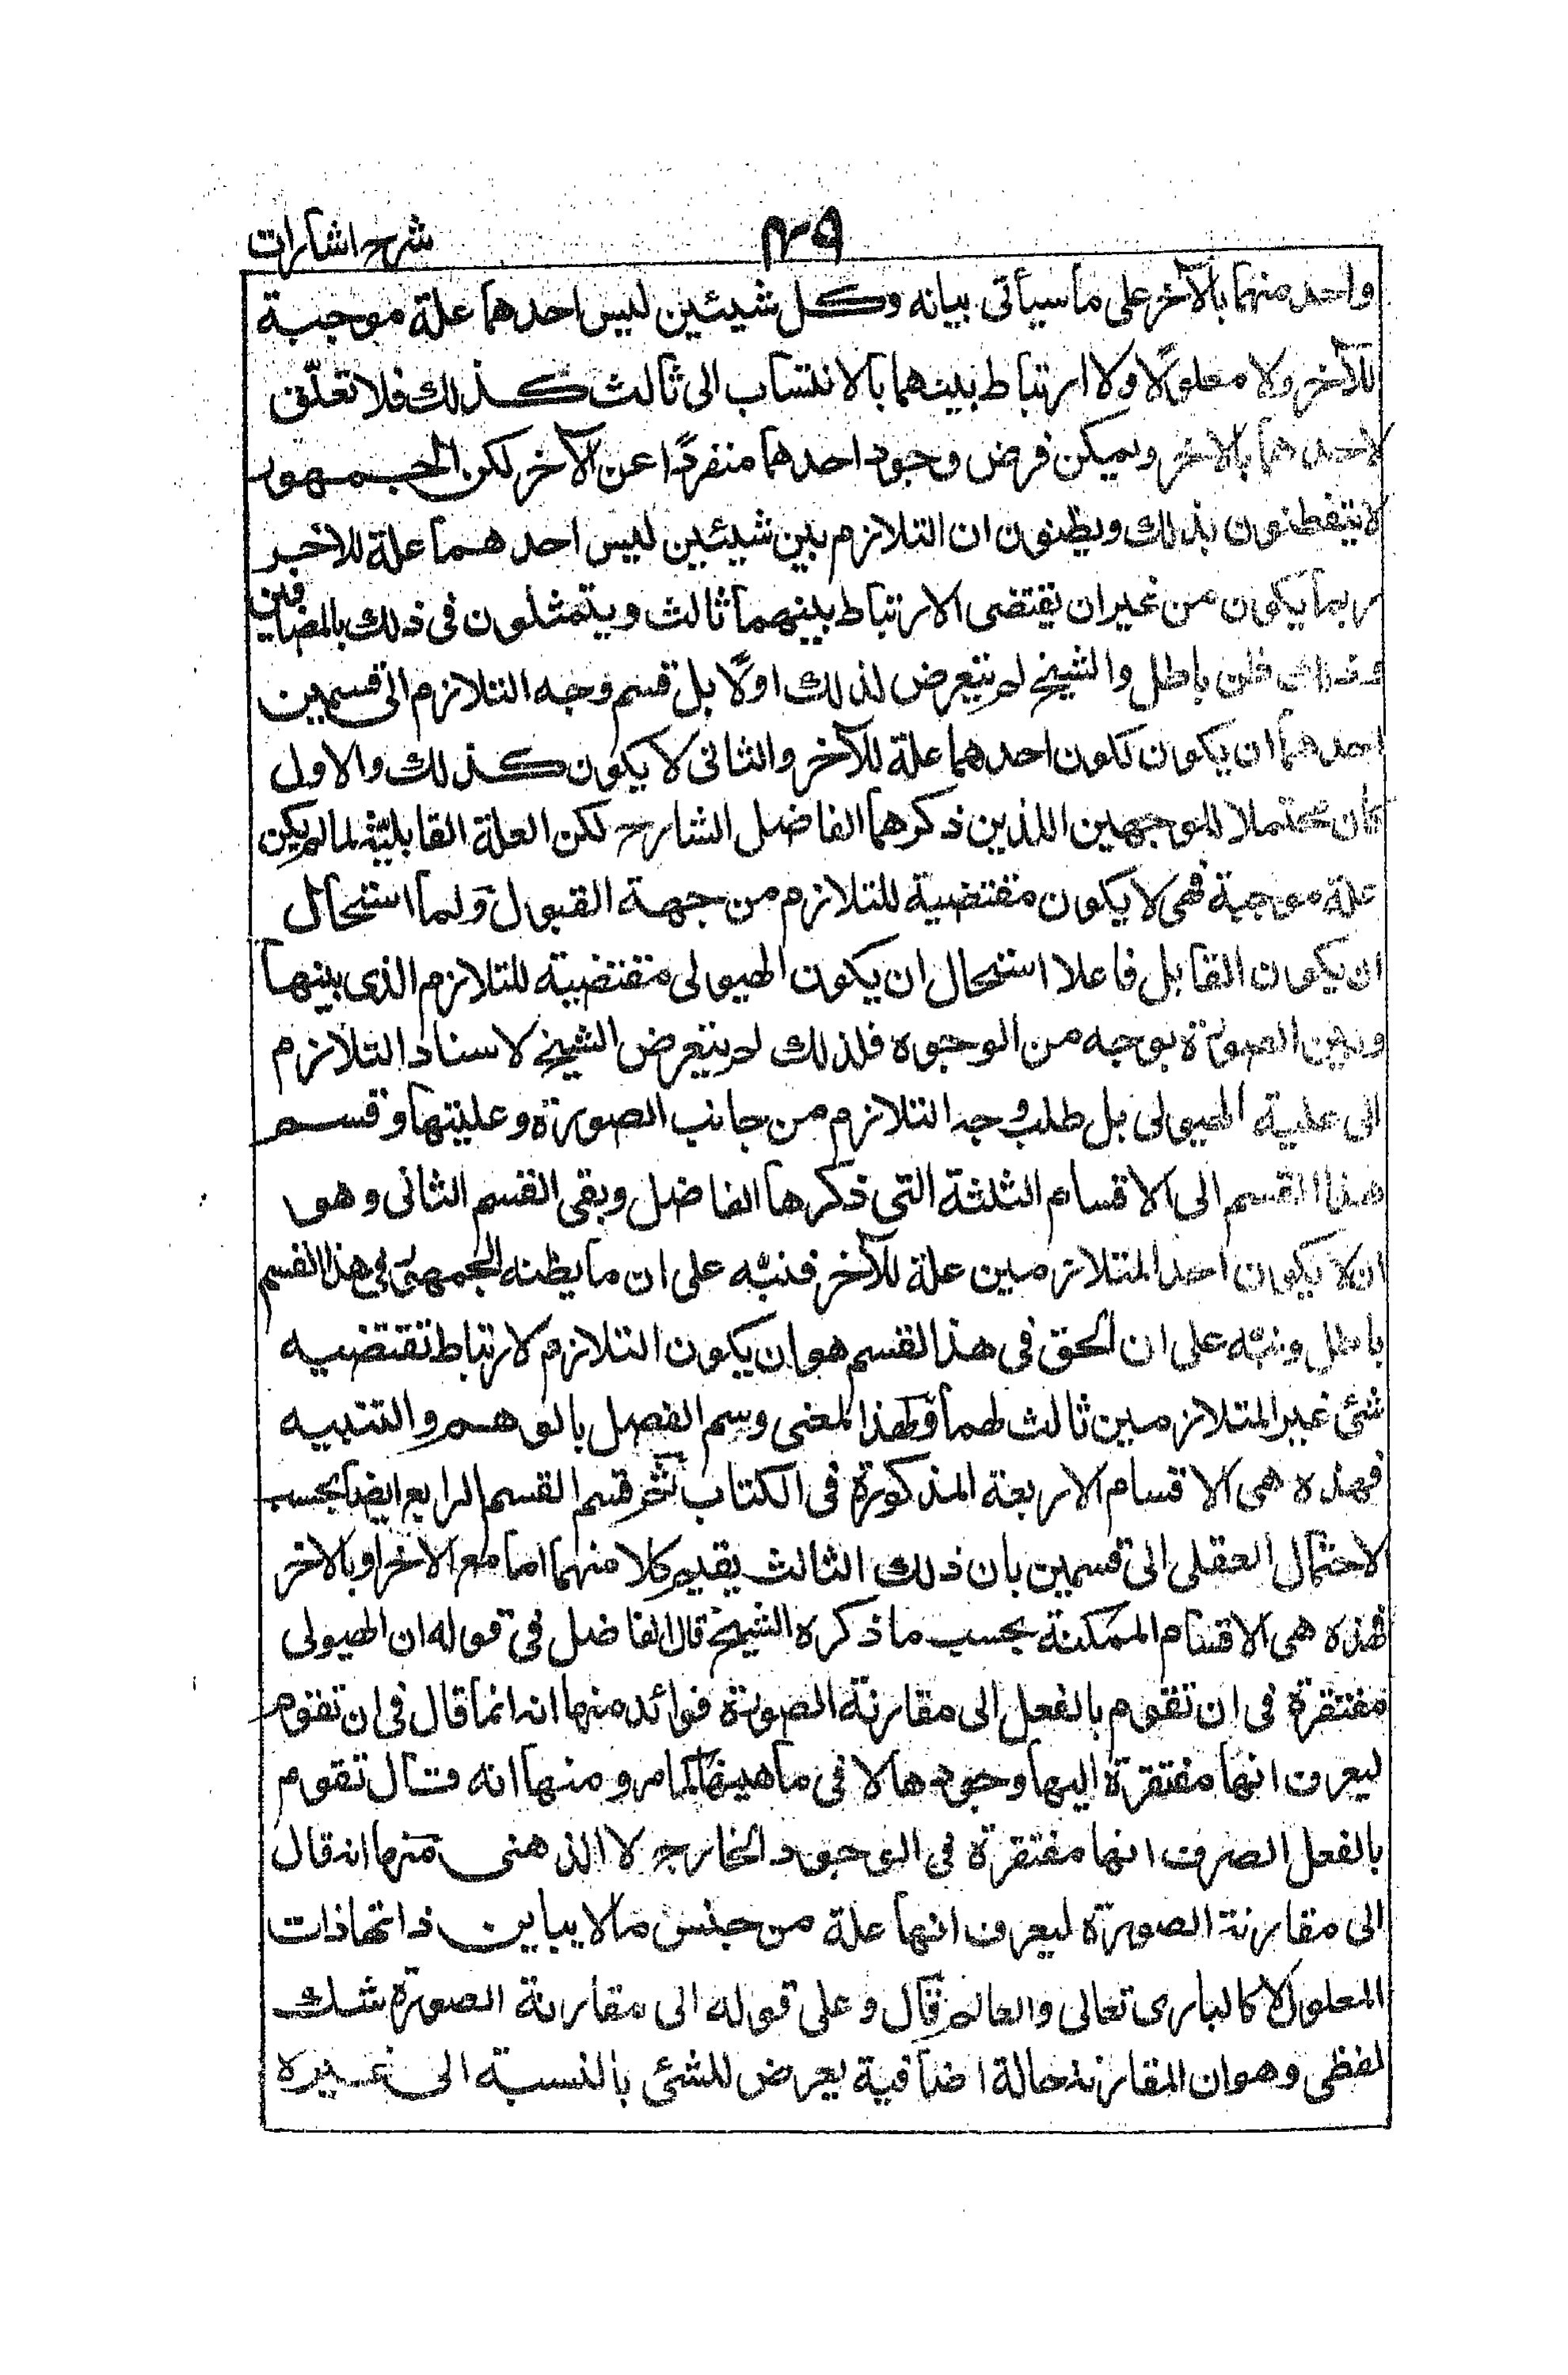 شرح اشارات
واحد منهما بالآخر على ما سيأتى بيانه وكل شيئين ليس احدهما علة موجبة
للآخر ولا معلولًا ولا ارتباط بينهما بالانتساب الى ثالث كذلك فلا تعلّق
لاحدهما بالاخر ويمكن فرض وجود احدهما منفردًا عن الآخر لكن الجمهور
لا يتفطنون بذلك ويظنون ان التلازم بين شيئين ليس احدهما علة للاخر
ربما يكون من غير ان يقتضى الارتباط بينهما ثالث ويتمثلون فى ذلك بالمضافين
ظن باطل والشيخ لم يتعرض لذلك اولًا بل قسم وجه التلازم الى قسمين
احدهما ان يكون لكون احدهما علة للآخر والثانى لا يكون كذلك والاول
كان محتملا للوجهين اللذين ذكرهما الفاضل الشارح لكن العلة القابليّة لما لم يكن
علة موجبة فهى لا يكون مقتضية للتلازم من جهة القبول ولما استحال
ان يكون القابل فاعلا استحال ان يكون الهيولى مقتضية للتلازم الذى بينها
وبين الصورة بوجه من الوجوه فلذلك لم يتعرض الشيخ لاسناد التلازم
الى علية الهيولى بل طلب وجه التلازم من جانب الصورة وعليتها وقسم
هذا القسم الى الاقسام الثلثة التى ذكرها الفاضل وبقى القسم الثانى وهو
ان لا يكون احد المتلازمين علة للآخر فنبّه على ان ما يظنه الجمهور فى هذا القسم
باطل ونبّه على ان الحق فى هذا القسم هو ان يكون التلازم لارتباط تقتضيه
شئ غير المتلازمين ثالث لهما ولهذا المعنى وسم الفصل بالوهم والتنبيه
فهذه هى الاقسام الاربعة المذكورة فى الكتاب ثم قسم القسم الرابع ايضا بحسب
الاحتمال العقلى الى قسمين بان ذلك الثالث يقيم كلا منهما اما مع الاخر او بالاخر
فهذه هى الاقسام الممكنة بحسب ما ذكره الشيخ قال الفاضل فى قوله ان الهيولى
مفتقرة فى ان تقوم بالفعل الى مقارنة الصورة فوائد منها انه انما قال فى ان تقوم
ليعرف انها مفتقرة اليها وجودها لا فى ماهيتها كما مر ومنها انه قال تقوم
بالفعل الصرف انها مفتقرة فى الوجود الخارج لا الذهنى منها انه قال
الى مقارنة الصورة ليعرف انها علة من جنس ما لا يباين ذاتها ذات
المعلول لا كالبارى تعالى والعالم قال وعلى قوله الى مقارنة الصورة شك
لفظى وهو ان المقارنة حالة اضافية يعرض للشئ بالنسبة الى غيره